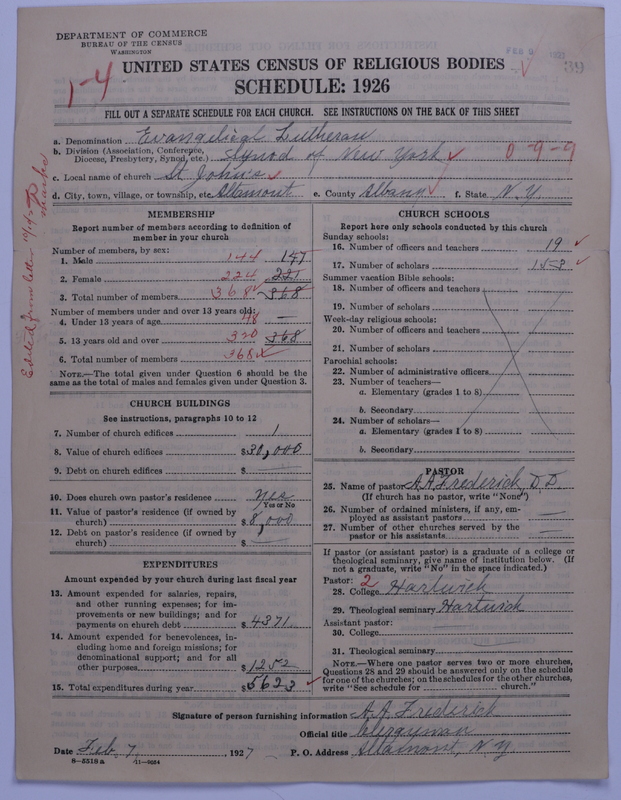 DEPARTMENT OF COMMERCE
BUREAU OF THE CENSUS
WASHINGTON
FEB 9 1927
39
1-4
UNITED STATES CENSUS OF RELIGIOUS BODIES
SCHEDULE: 1926
FILL OUT A SEPARATE SCHEDULE FOR EACH CHURCH. SEE INSTRUCTIONS ON THE BACK OF THIS SHEET
a. Denomination Evangelical Lutheran
b. Division (Association, Conference, Diocese, Presbytery, Synod, etc.) Synod of New York 0-9-9
c. Local name of church St John's
d. City, town, village, or township, etc. Altamont e. County Albany f. State N.Y.
MEMBERSHIP
Report number of members according to definition of
member in your church
Number of members, by sex:
1. Male 144 147
2. Female 224 221
3. Total number of members 368 368
Number of members under and over 13 years old:
4. Under 13 years of age 48 —
5. 13 years old and over 320 368
6. Total number of members 368
NOTE.—The total given under Question 6 should be the
same as the total of males and females given under Question 3.
CHURCH BUILDINGS
See instructions, paragraphs 10 to 12
7. Number of church edifices 1
8. Value of church edifices $30,000
9. Debt on church edifices $ —
10. Does church own pastor's residence Yes
Yes or No
11. Value of pastor's residence (if owned by
church) $8,000
12. Debt on pastor's residence (if owned by
church) $ —
EXPENDITURES
Amount expended by your church during last fiscal year
13. Amount expended for salaries, repairs,
and other running expenses; for im-
provements or new buildings; and for
payments on church debt $4371
14. Amount expended for benevolences, in-
cluding home and foreign missions; for
denominational support; and for all
other purposes $1252
15. Total expenditures during year $5623
CHURCH SCHOOLS
Report here only schools conducted by this church
Sunday schools:
16. Number of officers and teachers 19
17. Number of scholars 158
Summer vacation Bible schools:
18. Number of officers and teachers
19. Number of scholars
Week-day religious schools:
20. Number of officers and teachers
21. Number of scholars
Parochial schools:
22. Number of administrative officers
23. Number of teachers—
a. Elementary (grades 1 to 8)
b. Secondary
24. Number of scholars—
a. Elementary (grades 1 to 8)
b. Secondary
PASTOR
25. Name of pastor A A Frederick, D.D.
(If church has no pastor, write "None")
26. Number of ordained ministers, if any, em-
ployed as assistant pastors —
27. Number of other churches served by the
pastor or his assistants —
If pastor (or assistant pastor) is a graduate of a college or
theological seminary, give name of institution below. (If
not a graduate, write "No" in the space indicated.)
Pastor: 2
28. College Hartwick
29. Theological seminary Hartwick
Assistant pastor:
30. College
31. Theological seminary
NOTE.—Where one pastor serves two or more churches,
Questions 28 and 29 should be answered only on the schedule
for one of the churches; on the schedules for the other churches,
write "See schedule for church."
Signature of person furnishing information A. A. Frederick
Official title Clergyman
Date Feb 7, 1927 P. O. Address Altamont, N.Y.
8-5518a 11-9064